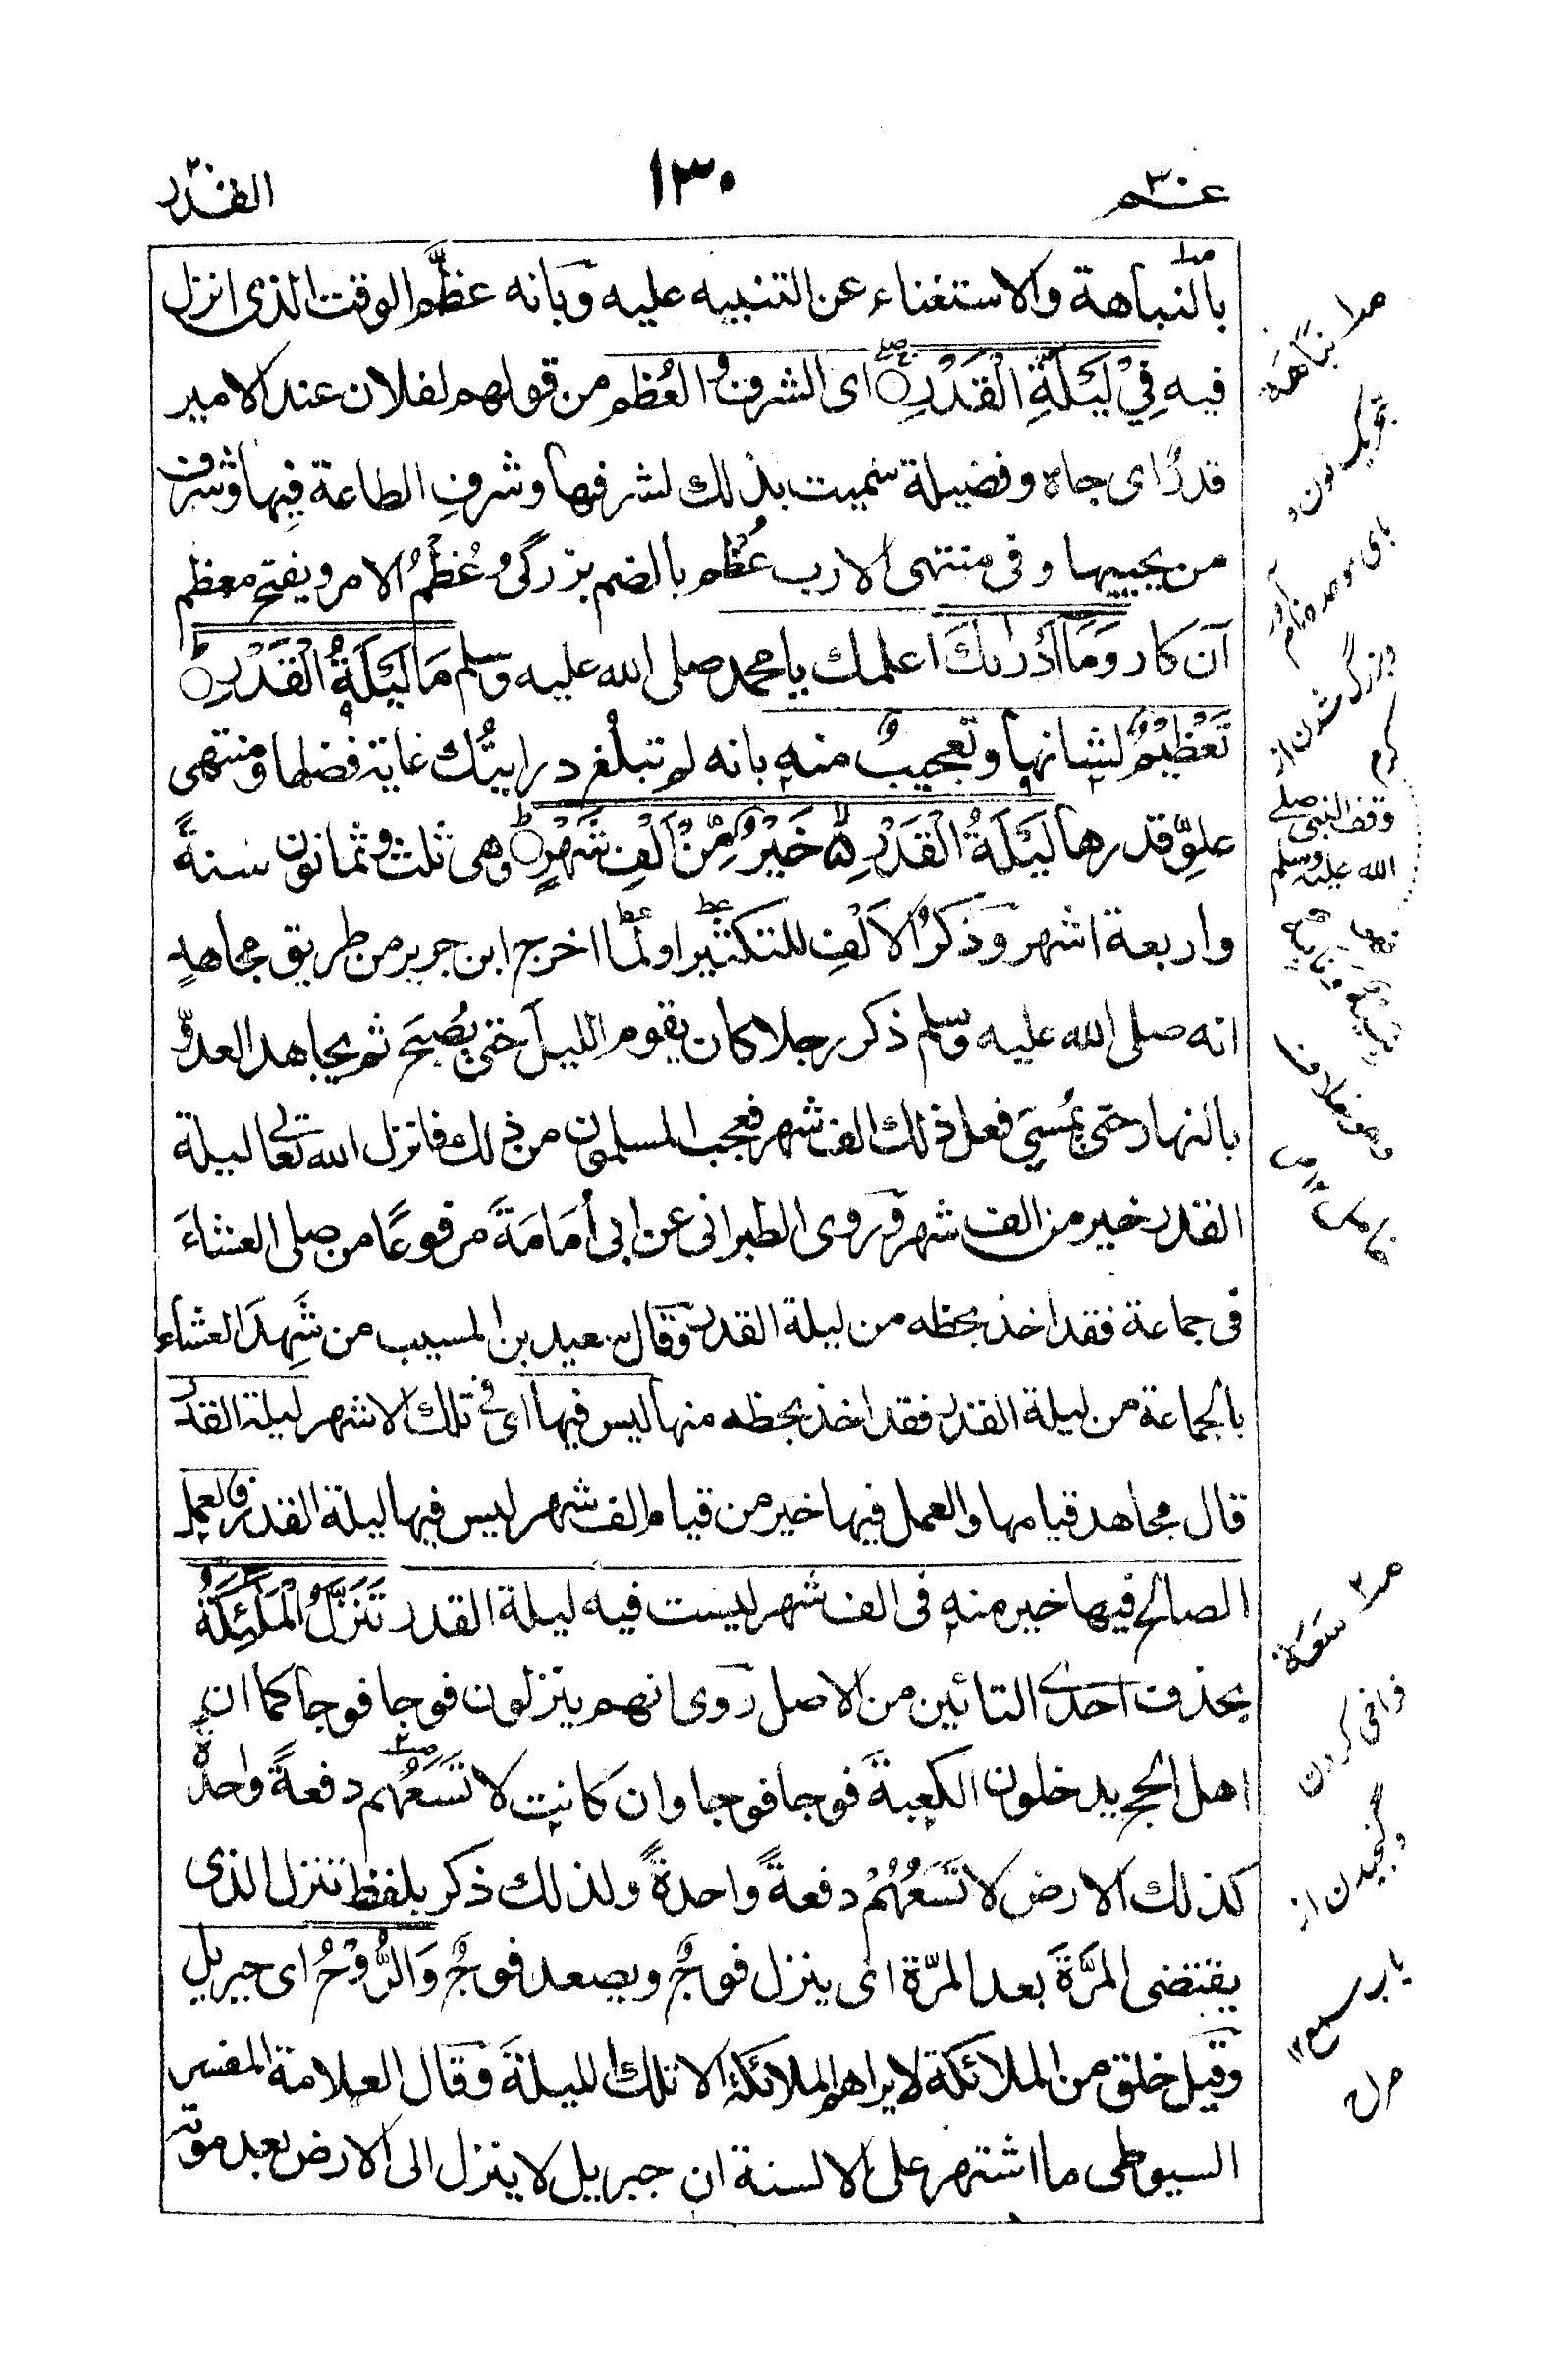 عم ٣٠
١٣٠
القدر
بالنباهة والاستغناء عن التنبيه عليه وبانه عظّم الوقت الذى انزل
فيه فِيْ لَيْلَةِ الْقَدْرِ اى الشرف والعُظم من قولهم لفلان عند الامير
قدرٌ اى جاه وفضيلة سميت بذلك لشرفها وشرفِ الطاعة فيها وشرف
من يحييها وفى منتهى الارب عُظْم بالضم بزرگى وعُظْمُ الامر ويفتح معظم
آن كار وَمَا اَدْرٰىكَ اعلمك يا محمد صلى الله عليه وسلم مَا لَيْلَةُ الْقَدْرِ
تَعْظِيْمٌ لشانها وتعجيبٌ منه بانه لم تبلغ درايتُك غاية فضلها ومنتهى
علوِّ قدرها لَيْلَةُ الْقَدْرِ خَيْرٌ مِّنْ اَلْفِ شَهْرٍ وهى ثلث وثمانون سنةً
واربعة اشهر وذَكرُ الاَلْفِ للتكثير او لمّا اخرج ابن جرير من طريق مجاهدٍ
انه صلى الله عليه وسلم ذكر رجلا كان يقوم الليلَ حتى يُصْبِحَ ثم يجاهد العدوّ
بالنهار حتى يُمْسِيَ فعل ذلك الف شهر فعجب المسلمون من ذلك فانزل الله تعالى ليلة
القدر خير من الف شهر وروى الطبرانى عن ابى اُمَامَةَ مرفوعًا من صلى العشاءَ
فى جماعة فقد اخذ بحظه من ليلة القدر وقال سعيد بن المسيب من شَهِدَ العشاء
بالجماعة من ليلة القدر فقد اخذ بحظه منها ليس فيها اى فى تلك الاشهر ليلة القدر
قال مجاهد قيامها والعمل فيها خير من قيام الف شهر ليس فيها ليلة القدر فالعمل
الصالح فيها خير منه فى الف شهر ليست فيه ليلة القدر تَنَزَّلُ الْمَلٰٓئِكَةُ
بحذف احدى التائين من الاصل روى انهم ينزلون فوجا فوجا كما ان
اهل الحج يدخلون الكعبةَ فوجا فوجا وان كانت لا تَسَعُهم دفعةً واحدةً
كذلك الارض لا تَسَعُهُمْ دفعةً واحدةً ولذلك ذكر بلفظ تنزل الذى
يقتضى المرَّةَ بعد المرّة اى ينزل فوجٌ ويصعد فوجٌ وَالرُّوْحُ اى جبريل
وقيل خلق من الملائكة لا يراهم الملائكة الا تلك الليلةَ وقال العلامة المفسر
السيوطى ما اشتهر على الالسنة ان جبريل لا ينزل الى الارض بعد موت
صـ١ نَبَاهَة
بتحريك نون و
باى موحده
وبزرگ شدن از
كرم
وقف النبى صلى
الله عليه وسلم
صـ٢ سَعَة
فراخى كردن
و گنجيدن از
باب سمع ١٢